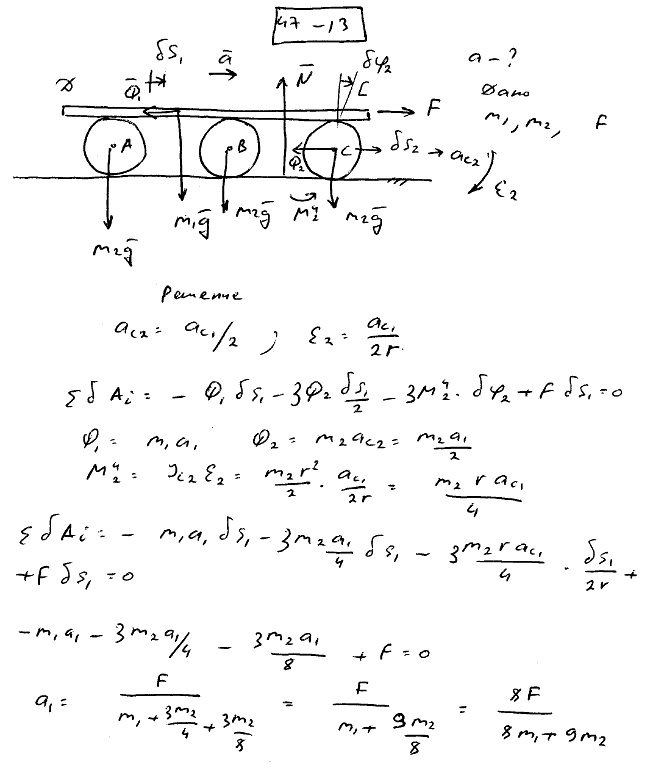 47-13
δS₁
ā
N̄
δφ₂
a - ?
D
Φ̄₁
F
Дано
m₁, m₂, F
A
B
Φ₂
C
δS₂
a_C2
ε₂
m₁ḡ
m₂ḡ
M₂ᵘ
m₂ḡ
m₂ḡ
Решение
a_C2 = a_C1/2 ; ε₂ = a_C1/2r.
ΣδAi = - Φ₁ δS₁ - 3Φ₂ δS₁/2 - 3M₂ᵘ · δφ₂ + F δS₁ = 0
Φ₁ = m₁a₁ Φ₂ = m₂a_C2 = m₂a₁/2
M₂ᵘ = J_C2 ε₂ = m₂r²/2 · a_C1/2r = m₂ r a_C1/4
ΣδAi = - m₁a₁ δS₁ - 3m₂a₁/4 δS₁ - 3m₂ r a_C1/4 · δS₁/2r +
+F δS₁ = 0
-m₁a₁ - 3m₂a₁/4 - 3m₂a₁/8 + F = 0
a₁ = F/(m₁ + 3m₂/4 + 3m₂/8) = F/(m₁ + 9m₂/8) = 8F/(8m₁ + 9m₂)